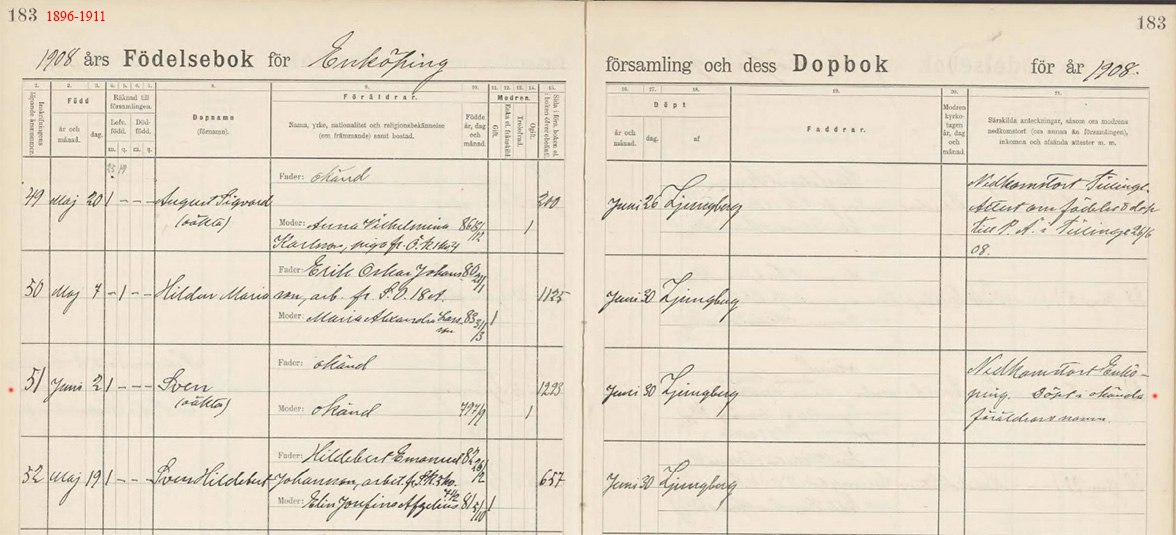 183 1896-1911
183
1908 års Födelsebok för Enköping
församling och dess Dopbok för år 1908.
1. 2. 3. 4. 5. 6. 7. 8. 9. 10. 11. 12. 13. 14. 15.
16. 17. 18. 19. 20. 21.
Inskrifningens löpande årsnummer.
Född
år och månad.
dag.
Räknad till församlingen.
Lefv. född.
Död- född.
m. q. m. q.
Dopnamn
(förnamn).
Föräldrar.
Namn, yrke, nationalitet och religionsbekännelse
(om främmande) samt bostad.
Födde år, dag och månad.
Modren.
Gift.
Enka el. frånskild.
Trolofvad.
Ogift.
Sida i förs. boken el. i boken öfver obefintl.
Döpt
år och månad.
dag.
af
Faddrar.
Modrens kyrkotagen år, dag och månad.
Särskilda anteckningar, såsom om modrens
nedkomstort (om annan än församlingen),
inkomna och afsända attester m. m.
Fader: okänd
49 Maj 20 1 - - - August Sigvard
(oäkta)
Moder: Anna Vilhelmina 86 8/12
Karlsson, piga fr.
1
Juni 26 Ljungberg
Nedkomstort Tillinge.
Attest om födelse o dop
till P. A. i Tillinge 26/6
08.
Fader: Erik Oskar Johans
50 Maj 7 - 1 - - Hildur Maria son, arb. fr. 1125
Moder: Maria Alexandra Lars
son 1
Juni 30 Ljungberg
Fader: okänd
51 Juni 2 1 - - - Sven 1223
(oäkta)
Moder: okänd 79 7/9 1
Juni 30 Ljungberg
Nedkomstort Enkö-
ping. Döpt i okända
föräldrars namn.
Fader: Hildebert Emanuel 82
52 Maj 19 1 - - - Sven Hildebert Johansson, arbet. fr. 657
Moder: Elin Josefina Afzelius 81 5/10 1
Juni 30 Ljungberg